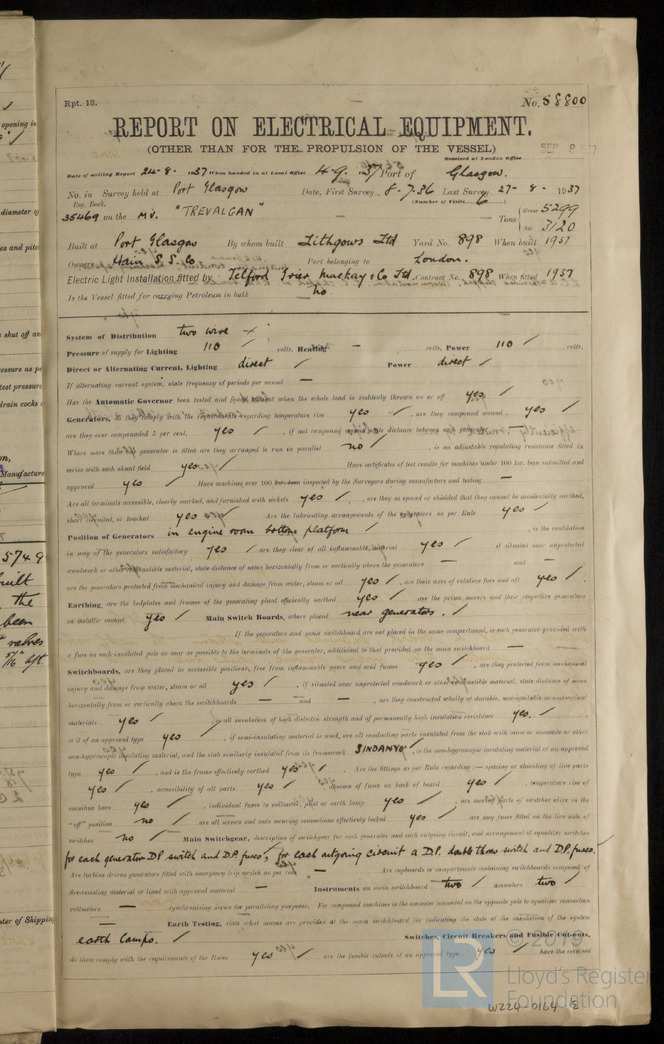 Rpt. 13. No. 58800
REPORT ON ELECTRICAL EQUIPMENT.
(OTHER THAN FOR THE PROPULSION OF THE VESSEL)
Received at London Office SEP 8
Date of writing Report 24-8-1937 When handed in at Local Office Port of Glasgow.
No. in Survey held at Port Glasgow Date, First Survey 8-7-36 Last Survey 27-8-1937
Reg. Book. (Number of Visits 6)
35469 on the M.V. "TREVALGAN" Tons { Gross 5299
Net 3120
Built at Port Glasgow By whom built Lithgows Ltd Yard No. 898 When built 1937
Owners Hain S.S. Co Port belonging to London.
Electric Light Installation fitted by Telford Grier Mackay & Co Ltd. Contract No. 898 When fitted 1937
Is the Vessel fitted for carrying Petroleum in bulk no
System of Distribution two wire
Pressure of supply for Lighting 110 volts, Heating — volts, Power 110 volts.
Direct or Alternating Current, Lighting direct Power direct
If alternating current system, state frequency of periods per second —
Has the Automatic Governor been tested and found efficient when the whole load is suddenly thrown on or off yes.
Generators, do they comply with the requirements regarding temperature rise yes, are they compound wound yes
are they over compounded 5 per cent. yes, if not compound wound state distance between each generator —
Where more than one generator is fitted are they arranged to run in parallel no, is an adjustable regulating resistance fitted in
series with each shunt field yes Have certificates of test results for machines under 100 kw. been submitted and
approved yes Have machines over 100 kw. been inspected by the Surveyors during manufacture and testing —
Are all terminals accessible, clearly marked, and furnished with sockets yes, are they so spaced or shielded that they cannot be accidentally earthed,
short circuited, or touched yes Are the lubricating arrangements of the generators as per Rule yes
Position of Generators in engine room bottom platform, is the ventilation
in way of the generators satisfactory yes are they clear of all inflammable material yes if situated near unprotected
woodwork or other combustible material, state distance of same horizontally from or vertically above the generators — and —
are the generators protected from mechanical injury and damage from water, steam or oil yes, are their axes of rotation fore and aft yes.
Earthing, are the bedplates and frames of the generating plant efficiently earthed yes are the prime movers and their respective generators
in metallic contact yes Main Switch Boards, where placed near generators.
If the generators and main switchboard are not placed in the same compartment, is each generator provided with
a fuse on each insulated pole as near as possible to the terminals of the generator, additional to that provided on the main switchboard —
Switchboards, are they placed in accessible positions, free from inflammable gases and acid fumes yes, are they protected from mechanical
injury and damage from water, steam or oil yes, if situated near unprotected woodwork or other combustible material, state distance of same
horizontally from or vertically above the switchboards — and —, are they constructed wholly of durable, non-ignitable non-absorbent
materials yes, is all insulation of high dielectric strength and of permanently high insulation resistance yes.
is it of an approved type yes, if semi-insulating material is used, are all conducting parts insulated from the slab with mica or micanite or other
non-hygroscopic insulating material, and the slab similarly insulated from its framework SINDANYO, is the non-hygroscopic insulating material of an approved
type yes, and is the frame effectively earthed yes. Are the fittings as per Rule regarding :— spacing or shielding of live parts
yes, accessibility of all parts yes, absence of fuses on back of board yes, temperature rise of
omnibus bars yes, individual fuses to voltmeter, pilot or earth lamp yes, are moving parts of switches alive in the
"off" position no are all screws and nuts securing connections effectively locked yes are any fuses fitted on the live side of
switches no Main Switchgear, description of switchgear for each generator and each outgoing circuit, and arrangement of equalizer switches
for each generator DP switch and D.P. fuses, for each outgoing circuit a D.P. double throw switch and D.P. fuses.
Are turbine driven generators fitted with emergency trip switch as per rule — Are cupboards or compartments containing switchboards composed of
fire-resisting material or lined with approved material — Instruments on main switchboard two ammeters two
voltmeters — synchronising device for paralleling purposes. For compound machines is the ammeter connected on the opposite pole to equalizer connection
— Earth Testing, state what means are provided at the main switchboard for indicating the state of the insulation of the system
earth lamps. Switches, Circuit Breakers and Fusible Cut-outs,
do these comply with the requirements of the Rules yes are the fusible cutouts of an approved type yes have the reversed
© 2019
Lloyd's Register
Foundation
LR
W224-0164